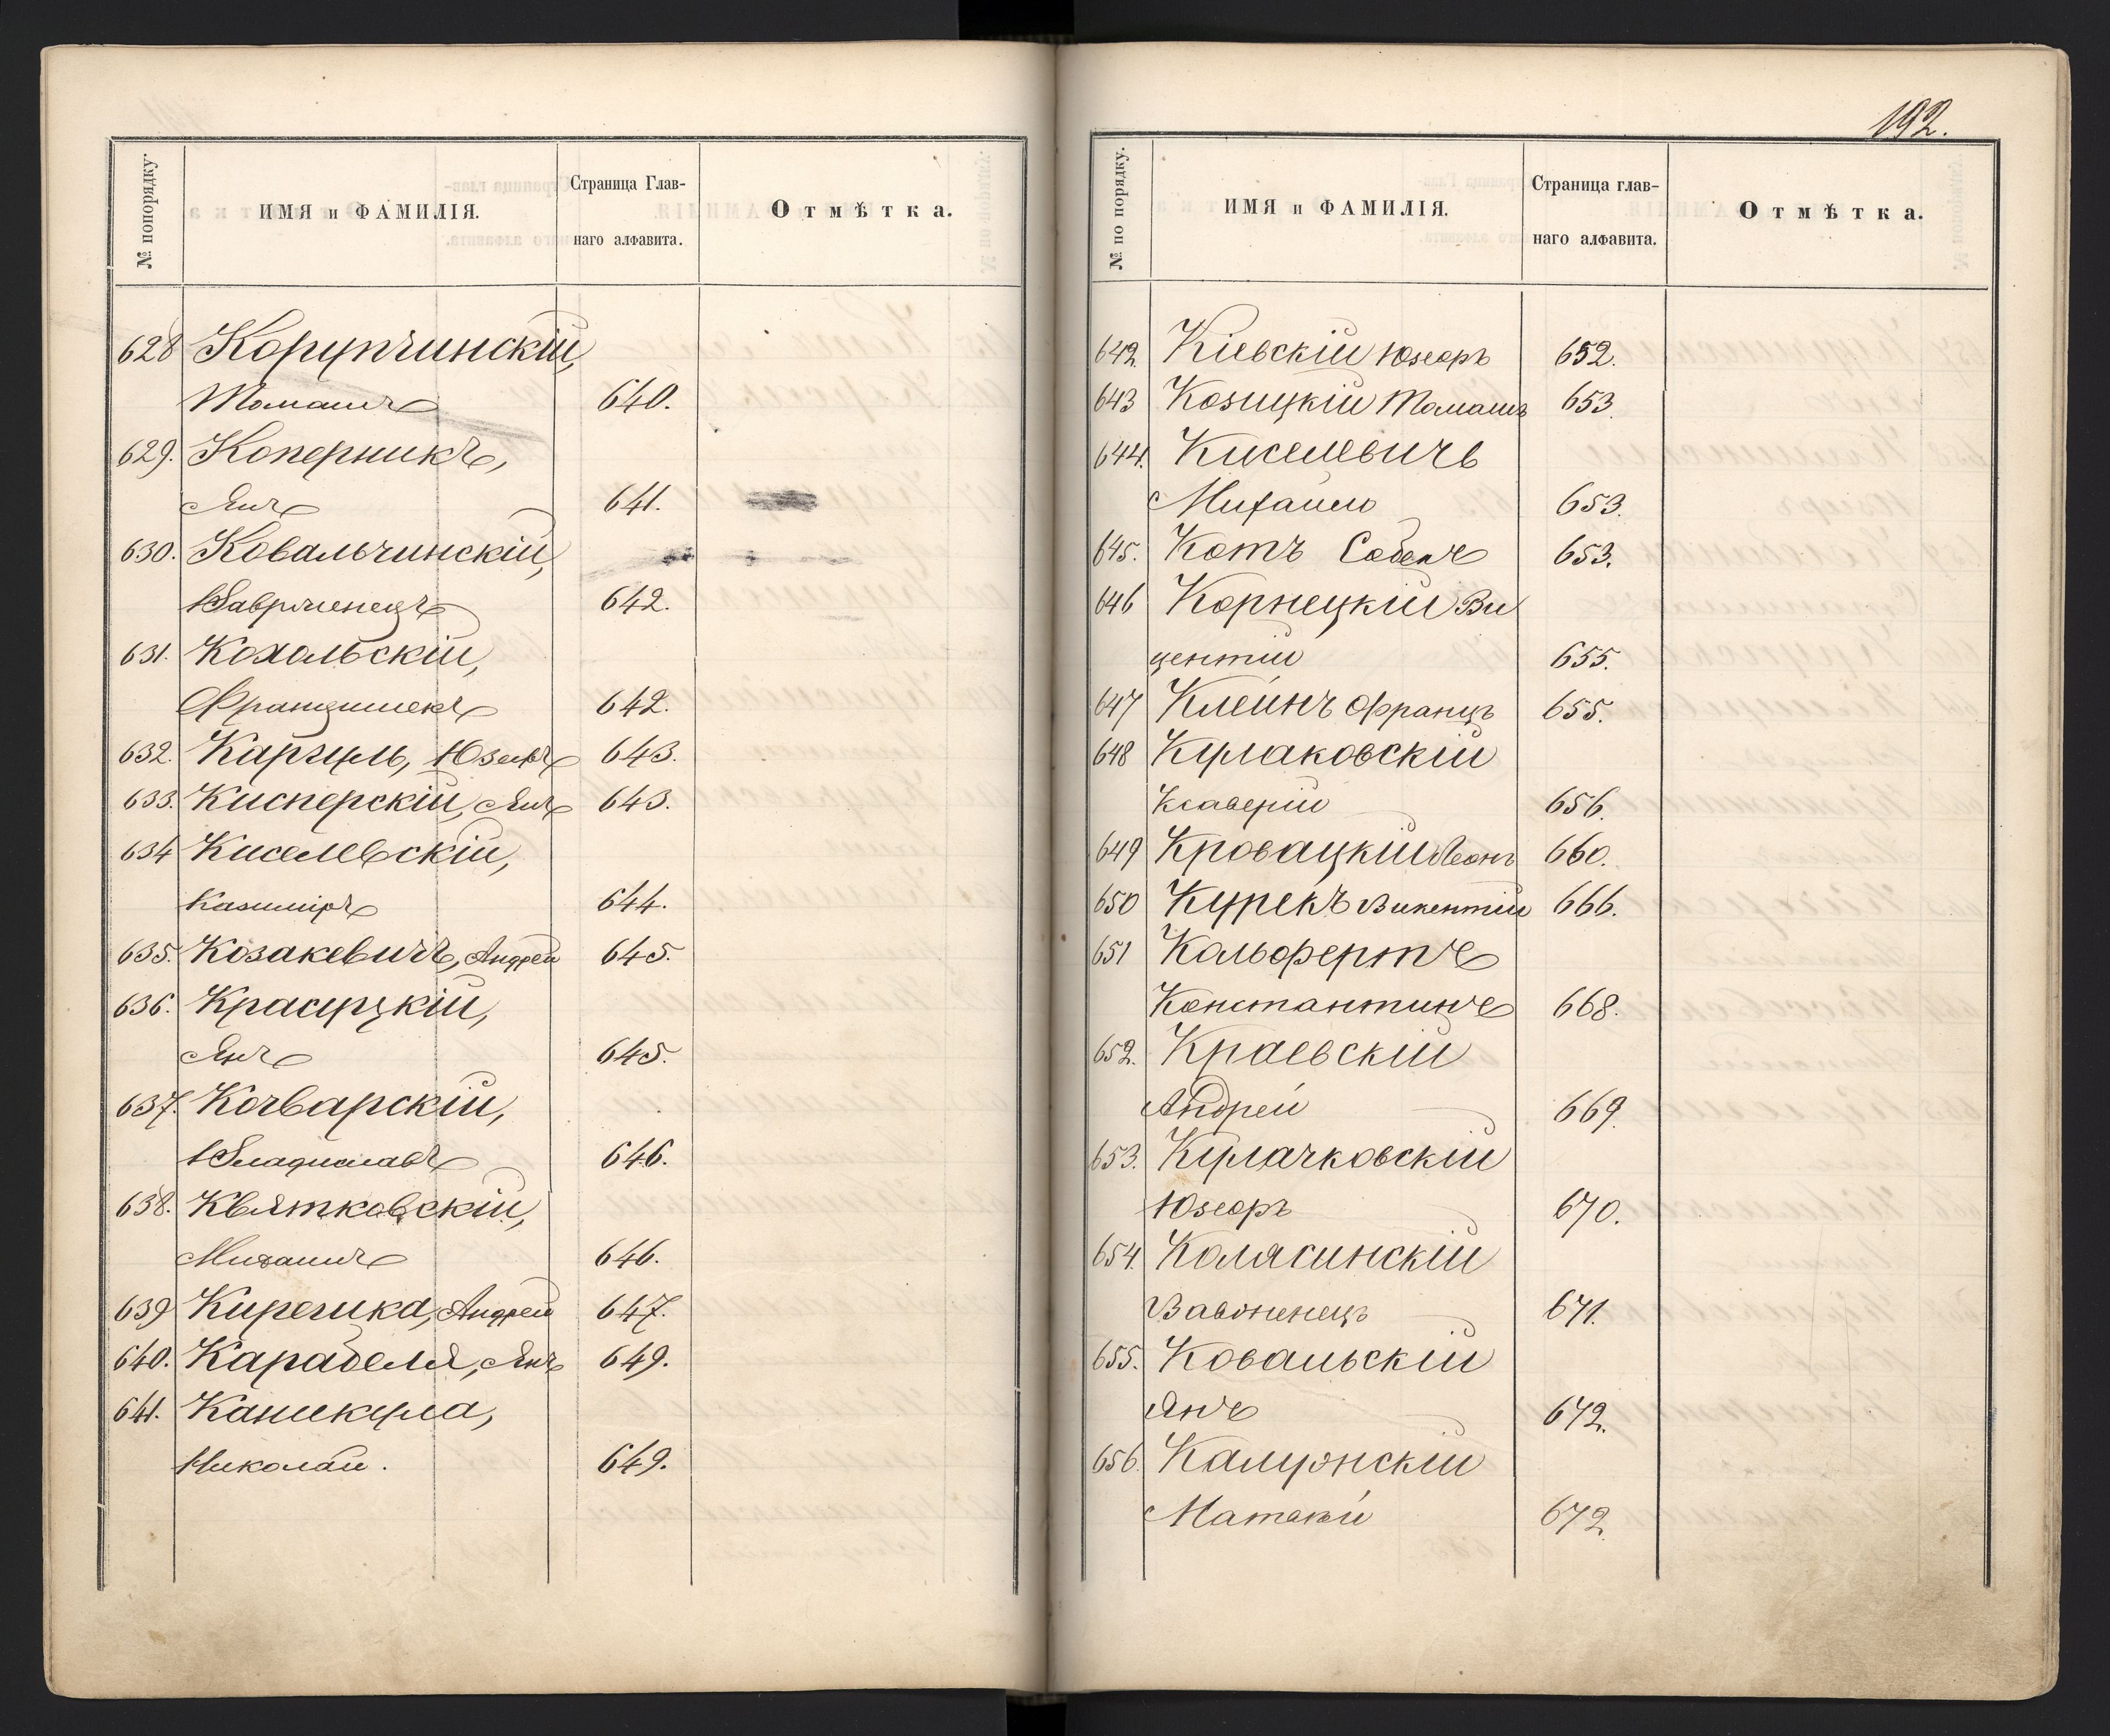 № попорядку.
ИМЯ и ФАМИЛІЯ.
Страница Глав-
наго алфавита.
Отмѣтка.
628 Корупчинскій,
Томашъ 640.
629. Коперникъ,
Янъ 641.
630. Ковальчинскій,
Вавржинецъ 642.
631. Кохальскій,
Францишекъ 642.
632. Каргуль, Юзефъ 643.
633. Кисперскій, Янъ 643.
634 Киселевскій,
Казимiръ 644.
635. Козакевичъ, Андрей 645.
636. Красуцкій,
Янъ 645.
637. Кочварскій,
Владиславъ 646.
638. Квятковскій,
Михаилъ 646.
639 Андрей 647.
640. Карабеля, Янъ 649.
641. Каникула,
Николай. 649.
192.
№ по порядку.
ИМЯ и ФАМИЛІЯ.
Страница глав-
наго алфавита.
Отмѣтка.
642. Кіевскій Юзефъ 652.
643 Козицкій Томашъ 653.
644. Киселевичъ
Михайло 653.
645. Котъ 653.
646 Корнецкій Ви
центій 655.
647 Клейнъ Францъ 655.
648 Кулаковскій
Ксаверій 656.
649 Кровацкій Леонъ 660.
650 Курекъ Викентій 666.
651 Кальфертъ
Константинъ 668.
652. Краевскій
Андрей 669.
653. Кулачковскій
Юзефъ 670.
654. Колясинскій
671.
655. Ковальскій
Янъ 672.
656. Калужнскій
672.